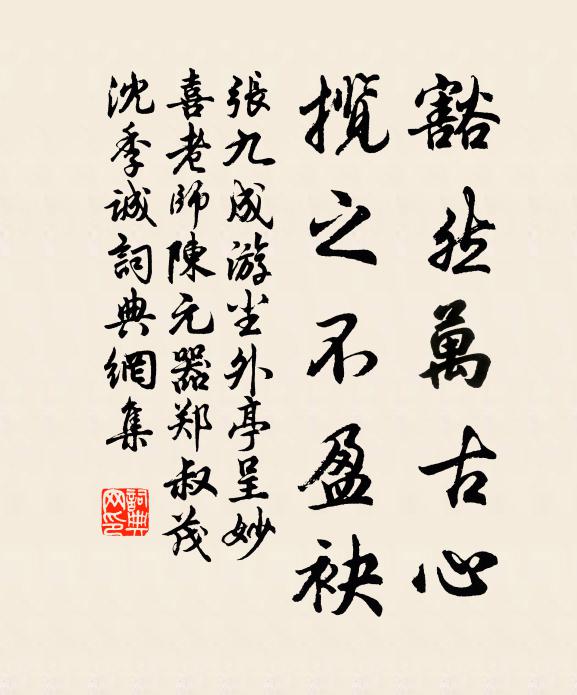 豁然萬古心
攬之不盈袂
張九成游尘外亭呈妙
喜老師陳元器郑叔茂
沈季誠詞典網集
詞典网印